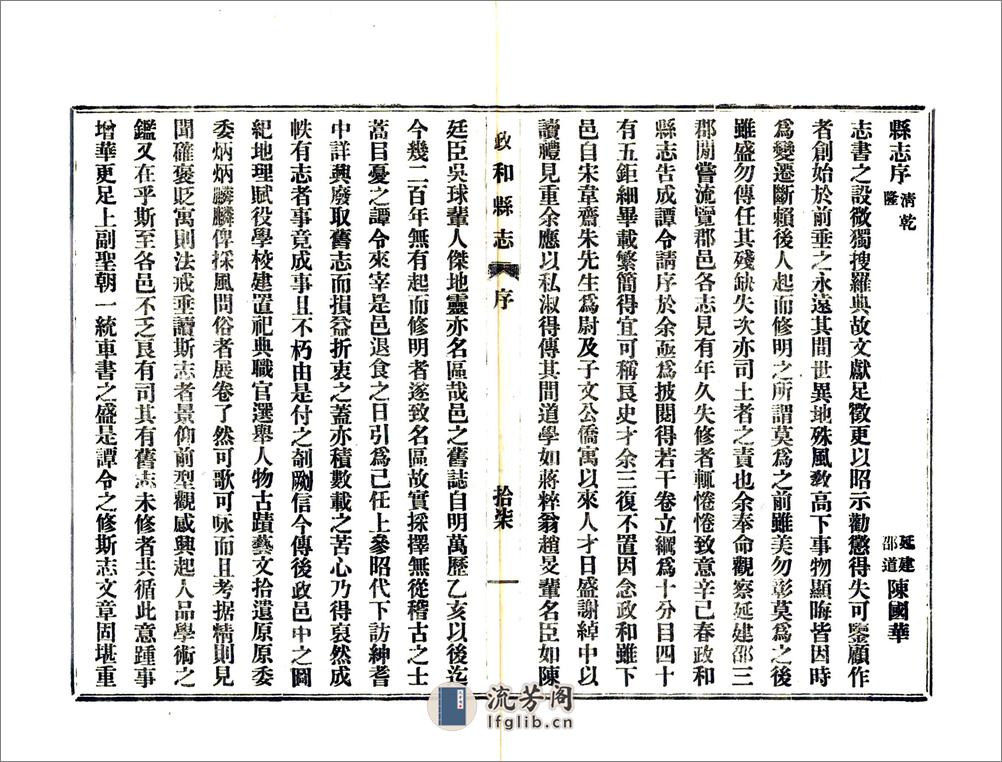 縣志序 清乾隆 延建邵道陳國華
志書之設微獨搜羅典故文獻足徵更以昭示勸懲得失可鑒顧作
者創始於前垂之永遠其間世異地殊風敎高下事物顯晦皆因時
爲變遷斷賴後人起而修明之所謂莫爲之前雖美勿彰莫爲之後
雖盛勿傳任其殘缺失次亦司土者之責也余奉命觀察延建邵三
郡閒嘗流覽郡邑各志見有年久失修者輒惓惓致意辛已春政和
縣志告成譚令請序於余亟爲披閱得若干卷立綱爲十分目四十
有五鉅細畢載繁簡得宜可稱良史才余三復不置因念政和雖下
邑自宋韋齋朱先生爲尉及子文公僑寓以來人才日盛謝綽中以
讀禮見重余應以私淑得傳其間道學如蔣粹翁趙旻輩名臣如陳
政和縣志 序 拾柒
廷臣吳球輩人傑地靈亦名區哉邑之舊誌自明萬歷乙亥以後迄
今幾二百年無有起而修明者遂致名區故實採擇無從稽古之士
蒿目憂之譚令來宰是邑退食之日引爲己任上參昭代下訪紳耆
中詳興廢取舊志而損益折衷之蓋亦積數載之苦心乃得裒然成
帙有志者事竟成事且不朽由是付之剞劂信今傳後政邑中之圖
紀地理賦役學校建置祀典職官選舉人物古蹟藝文拾遺原原委
委炳炳麟麟俾採風問俗者展卷了然可歌可咏而且考据精則見
聞確褒貶寓則法戒垂讀斯志者景仰前型觀感興起人品學術之
鑑又在乎斯至各邑不乏良有司其有舊志未修者共循此意踵事
增華更足上副聖朝一統車書之盛是譚令之修斯志文章固堪重
流芳阁
lfglib.cn